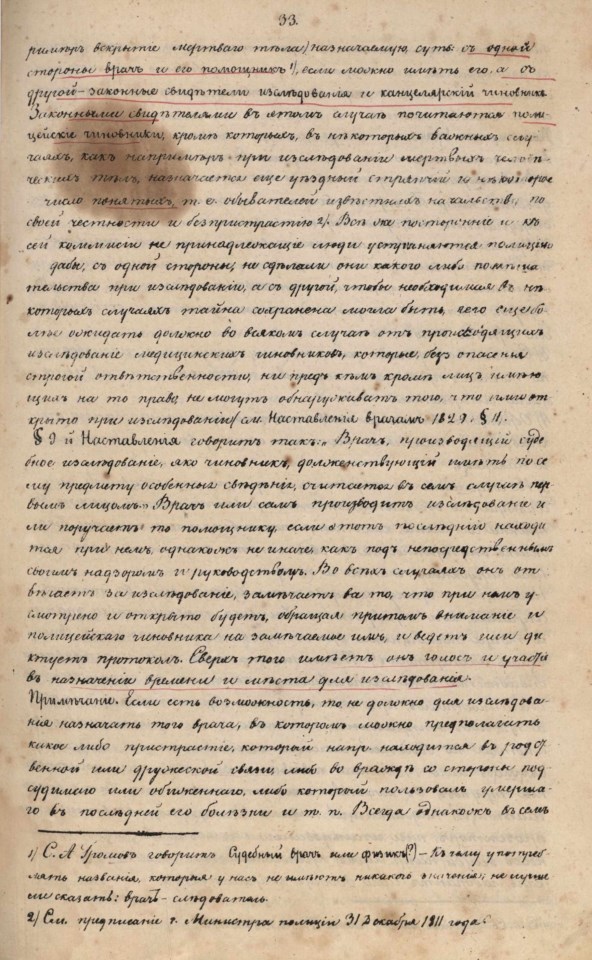 33.
примѣръ вскрытіе мертваго тѣла) назначаемую, суть: съ одной
стороны врачъ и его помощникъ 1), если можно имѣть его, а съ
другой – законные свидѣтели изслѣдованія и канцелярскій чиновникъ.
Законными свидѣтелями въ этомъ случаѣ почитаются поли-
цейскіе чиновники, кромѣ которыхъ, въ нѣкоторыхъ важныхъ слу-
чаяхъ, какъ напримѣръ при изслѣдованіи мертвыхъ человѣ-
ческихъ тѣлъ, назначается еще уѣздный стряпчій и нѣкоторое
число понятыхъ, т. е. обывателей извѣстныхъ начальству, по
своей честности и безпристрастію 2). Всѣ же посторонніе и къ
сей коммисіи не принадлежащіе люди устраняются полиціею
дабы, съ одной стороны, не сдѣлали они какого либо помѣша-
тельства при изслѣдованіи, а съ другой, чтобы необходимая въ нѣ-
которыхъ случаяхъ тайна сохранена могла быть, чего еще бо-
лѣе ожидать должно во всякомъ случаѣ отъ производящихъ
изслѣдованіе медицинскихъ чиновниковъ, которые, безъ опасенія
строгой отвѣтственности, ни предъ кѣмъ кромѣ лицъ имѣю-
щихъ на то право, не могутъ обнаруживать того, что ими от-
крыто при изслѣдованіи (см. Наставленія врачамъ 1829. § 11.
§ 9 й Наставленія говоритъ такъ: „Врачъ, производящій суде-
бное изслѣдованіе, яко чиновникъ, долженствующій имѣть по се-
му предмѣту особенныя свѣдѣнія, считается въ семъ случаѣ пер-
вымъ лицомъ.” Врачъ или самъ производитъ изслѣдованіе и-
ли поручаетъ то помощнику, если этотъ послѣдній находи-
тся при немъ, однакожъ не иначе, какъ подъ непосредственнымъ
своимъ надзоромъ и руководствомъ. Во всѣхъ случаяхъ онъ от-
вѣчаетъ за изслѣдованіе, замѣчаетъ все то, что при немъ у-
смотрено и открыто будетъ, обращая притомъ вниманіе и
полицейскаго чиновника на замѣчаемое имъ, и ведетъ или ди-
ктуетъ протоколъ. Сверхъ того имѣетъ онъ голосъ и участіе
въ назначеніи времени и мѣста для изслѣдованія.
Примѣчаніе. Если есть возможность, то не должно для изслѣдова-
нія назначать того врача, въ которомъ можно предполагать
какое либо пристрастіе, который напр. находится въ родст-
венной или дружеской связи, либо во враждѣ со стороны под-
судимаго или обиженнаго, либо который пользовалъ умерша-
го въ послѣдней его болѣзни и т. п. Всегда однакожъ въ семъ
1) С. А. Громовъ говоритъ Судебный врачъ или физикъ (?) – Къ чему употреб-
лять названія, которыя у насъ не имѣютъ никакого значенія; не лучше
ли сказать: врачъ – слѣдователь.
2) См. предписаніе г. Министра полиціи 31 Декабря 1811 года.